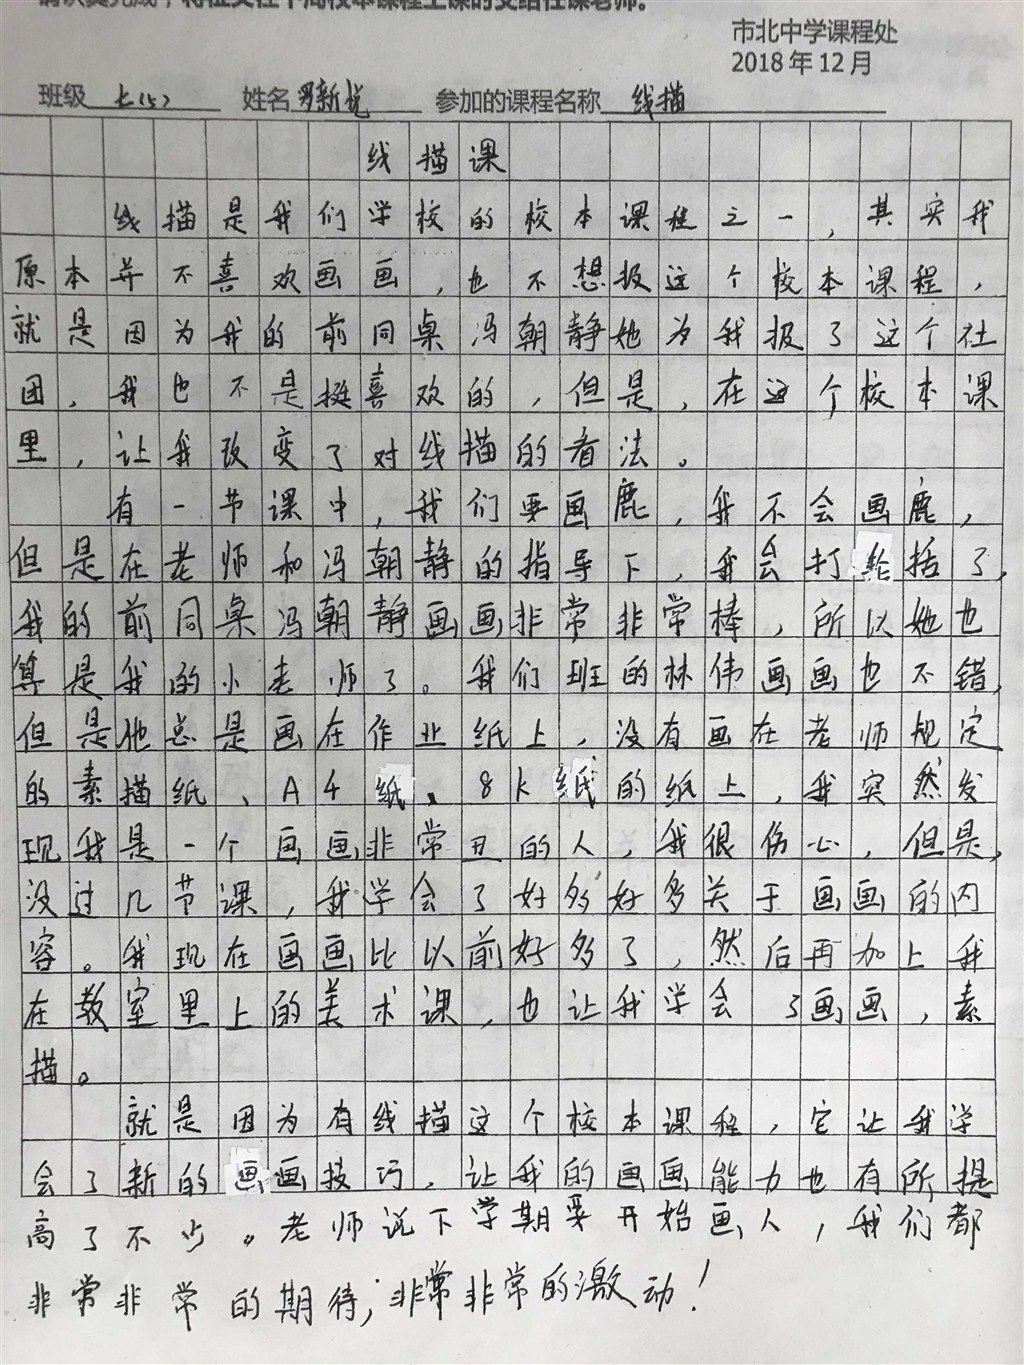 请认真完成，将征文在下周校本课程上课时交给任课老师。
市北中学课程处
2018年12月
班级 七(5) 姓名 罗新悦 参加的课程名称 线描
线描课
线描是我们学校的校本课程之一，其实我
原本并不喜欢画画，也不想报这个校本课程，
就是因为我的前同桌冯朝静她为我报了这个社
团，我也不是挺喜欢的，但是，在这个校本课
里，让我改变了对线描的看法。
有一节课中，我们要画鹿，我不会画鹿，
但是在老师和冯朝静的指导下，我会打轮括了，
我的前同桌冯朝静画画非常非常棒，所以她也
算是我的小老师了。我们班的林伟画画也不错，
但是他总是画在作业纸上，没有画在老师规定
的素描纸、A4纸、8k纸的纸上，我突然发
现我是一个画画非常丑的人，我很伤心，但是，
没过几节课，我学会了好多好多关于画画的内
容。我现在画画比以前好多了，然后再加上我
在教室里上的美术课，也让我学会了画画，素
描。
就是因为有线描这个校本课程，它让我学
会了新的画画技巧，让我的画画能力也有所提
高了不少。老师说下学期要开始画人，我们都
非常非常的期待，非常非常的激动！